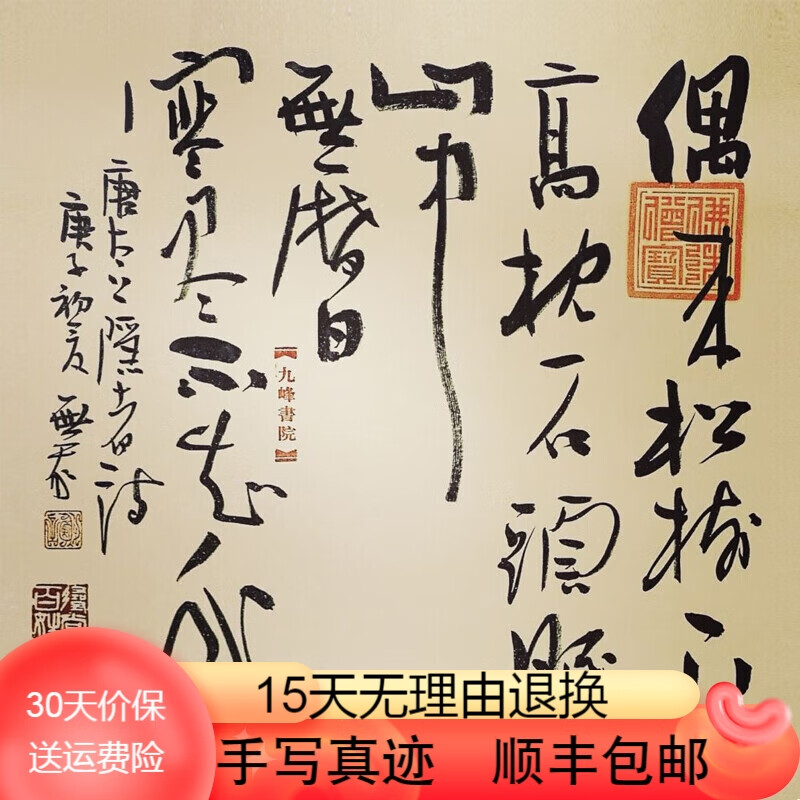 偶来松樹下
高枕石頭眠
山中
無曆日
寒尽不知年
唐太上隱者詩
庚子初夏
佛法僧寶
【九峰書院】
30天价保
送运费险
15天无理由退换
手写真迹 顺丰包邮